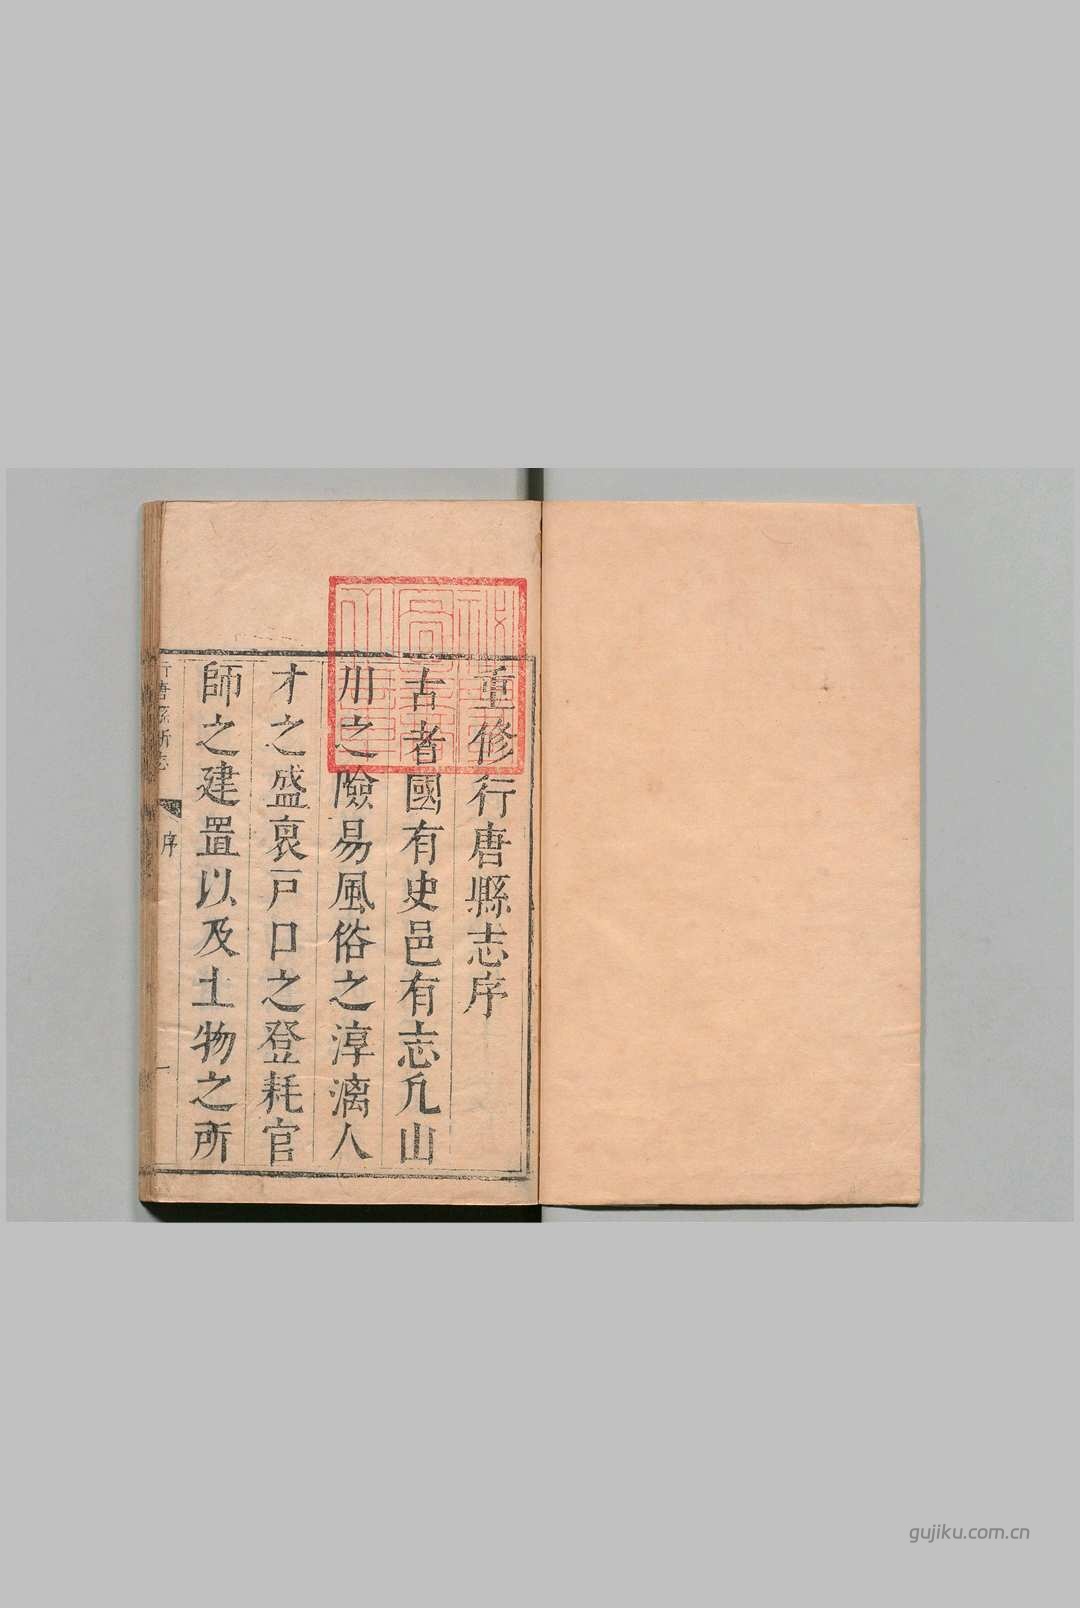 重修行唐縣志序
古者國有史邑有志凡山
川之險易風俗之淳漓人
才之盛衰戸口之登耗官
師之建置以及土物之所
行唐縣新志
序
一
gujiku.com.cn